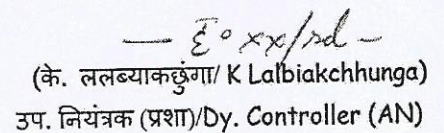 (के. ललब्याकछुंगा/ K Lalbiakchhunga)
उप. नियंत्रक (प्रशा)/Dy. Controller (AN)